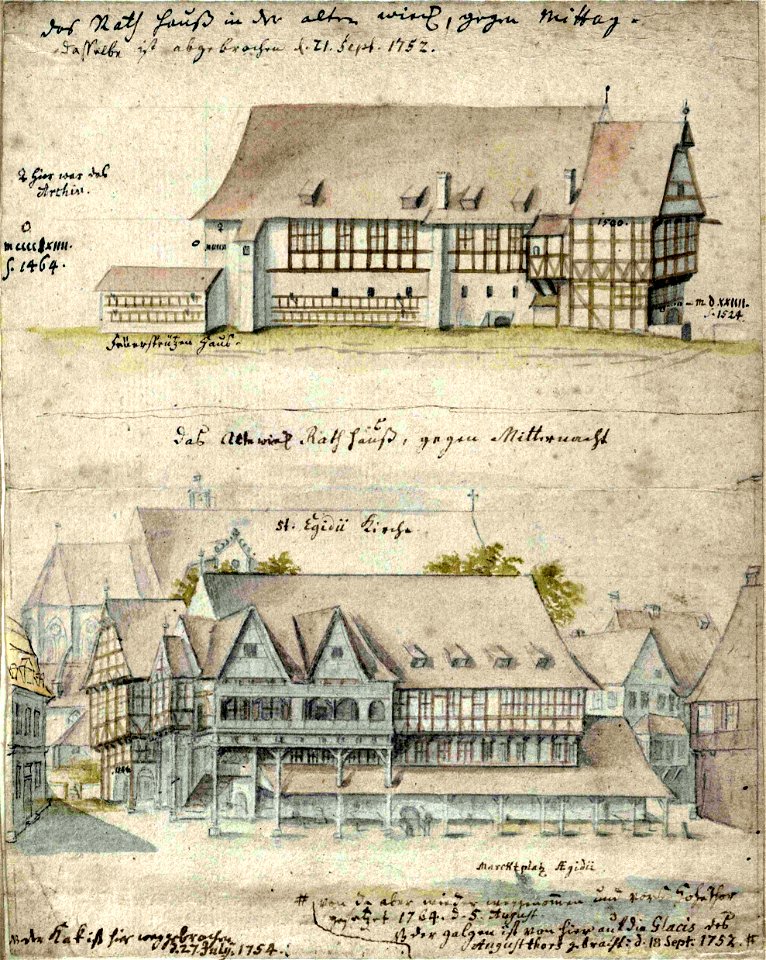 das Rath Hauß in der alten wiek, gegen Mittag.
dasselbe ist abgebrochen d. 21. Sept. 1752.
hier war das
Archiv.
S. 1464.
1500.
m d xxiiii
S. 1524
Feüersprützen Haus.
das Altewiek Rath Hauß, gegen Mitternacht
st. Egidii Kirche
Marcktplatz Ægidii
# von da aber wieder weggenommen und vors Hohethor
gesetzet 1764. d. 5. August
der galgen ist von hier auf die Glacis des
Augustthors gebracht: d. 18 Sept. 1752. #
der Kak ist hier weggebrochen
d. 27 July. 1754.